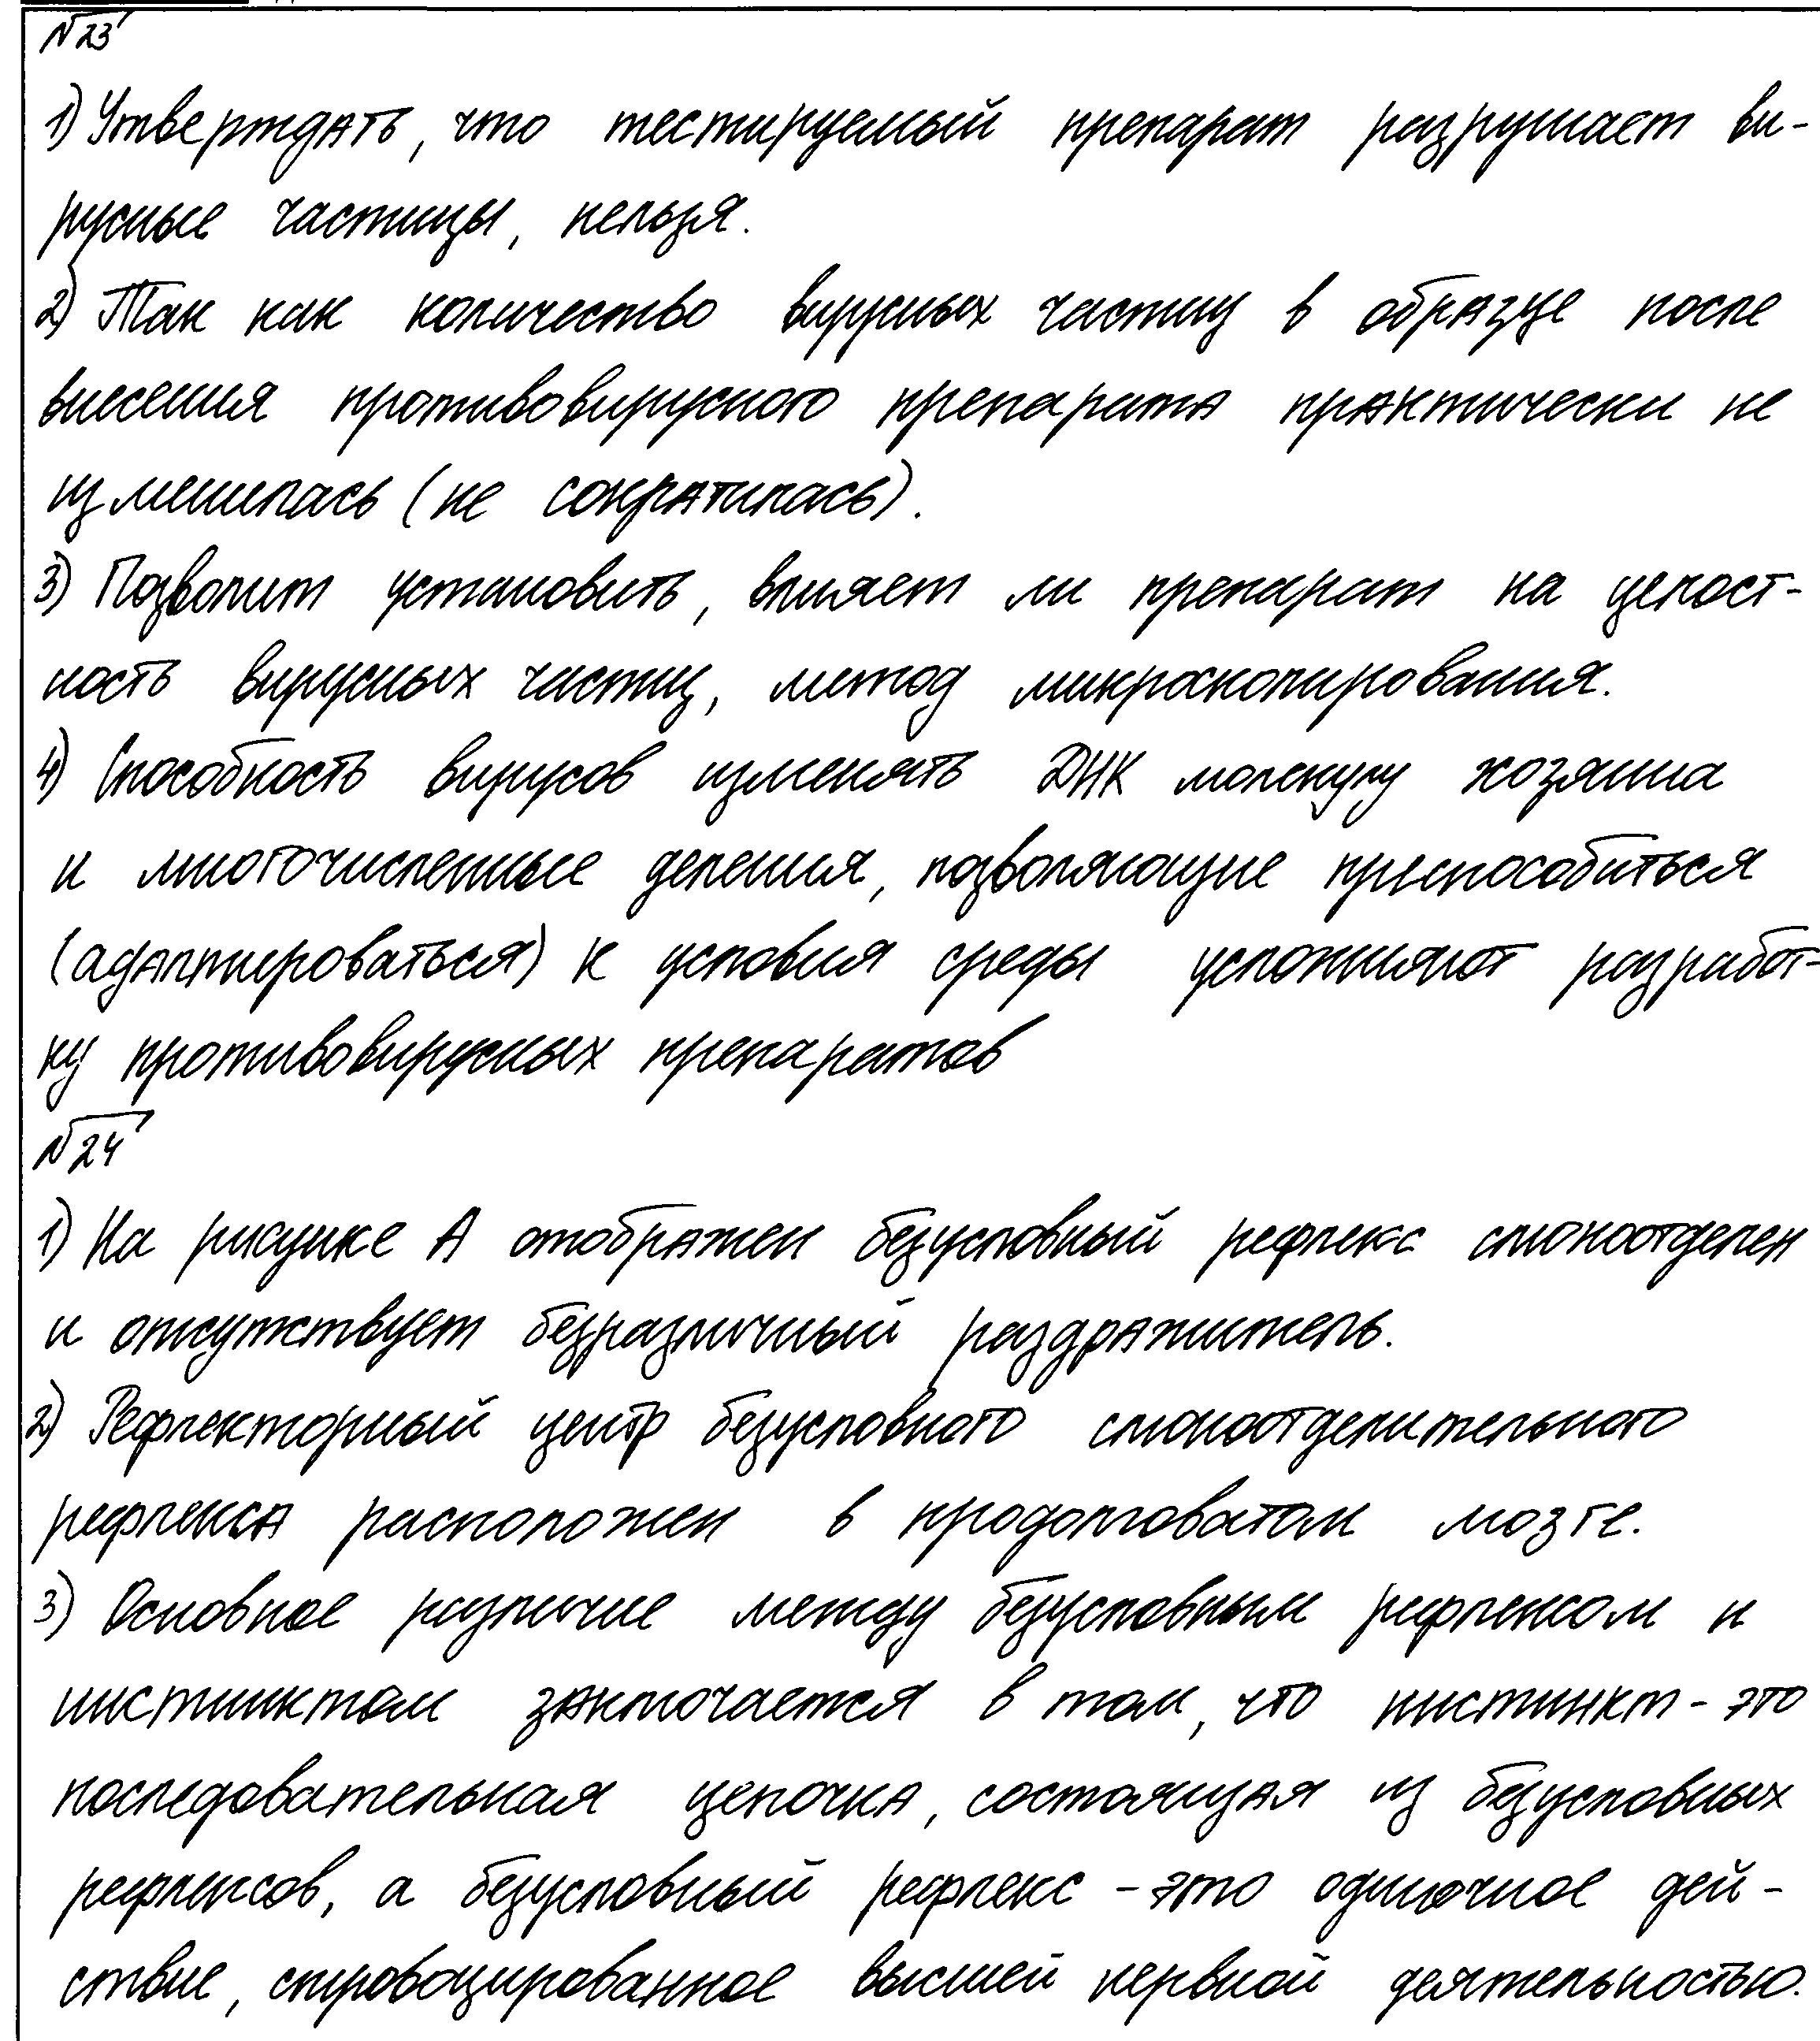 №23
1) Утверждать, что тестируемый препарат разрушает ви-
русные частицы, нельзя.
2) Так как количество вирусных частиц в образце после
внесения противовирусного препарата практически не
изменилась (не сократилась).
3) Позволит установить, влияет ли препарат на целост-
ность вирусных частиц, метод микроскопирования.
4) Способность вирусов изменять ДНК молекулу хозяина
и многочисленные деления, позволяющие приспособиться
(адаптироваться) к условия среды усложняют разработ-
ку противовирусных препаратов
№24
1) На рисунке А отображен безусловный рефлекс слюноотделен
и отсутствует безразличный раздражитель.
2) Рефлекторный центр безусловного слюноотделительного
рефлекса расположен в продолговатом мозге.
3) Основное различие между безусловным рефлексом и
инстинктом заключается в том, что инстинкт - это
последовательная цепочка, состоящая из безусловных
рефлексов, а безусловный рефлекс - это одиночное дей-
ствие, спровоцированное высшей нервной деятельностью.